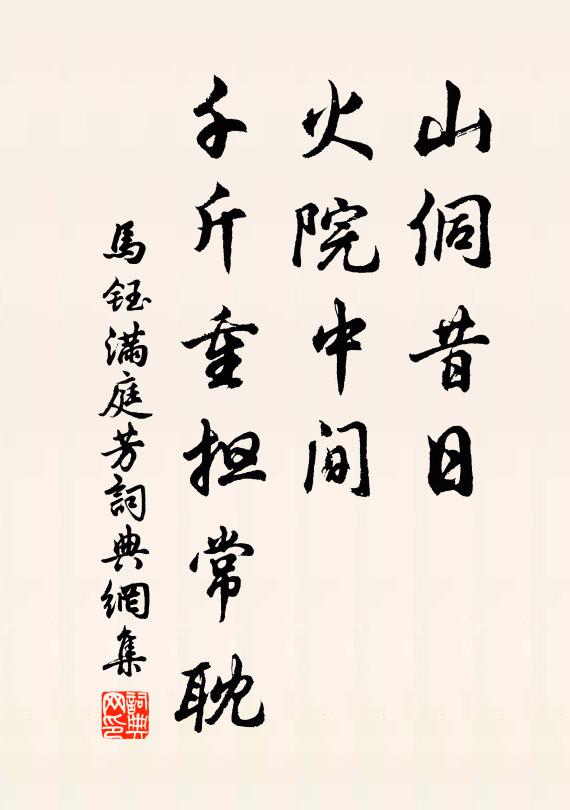 山侗昔日
火院中间
千斤重担常耽
馬鈺满庭芳詞典網集
詞典
网印